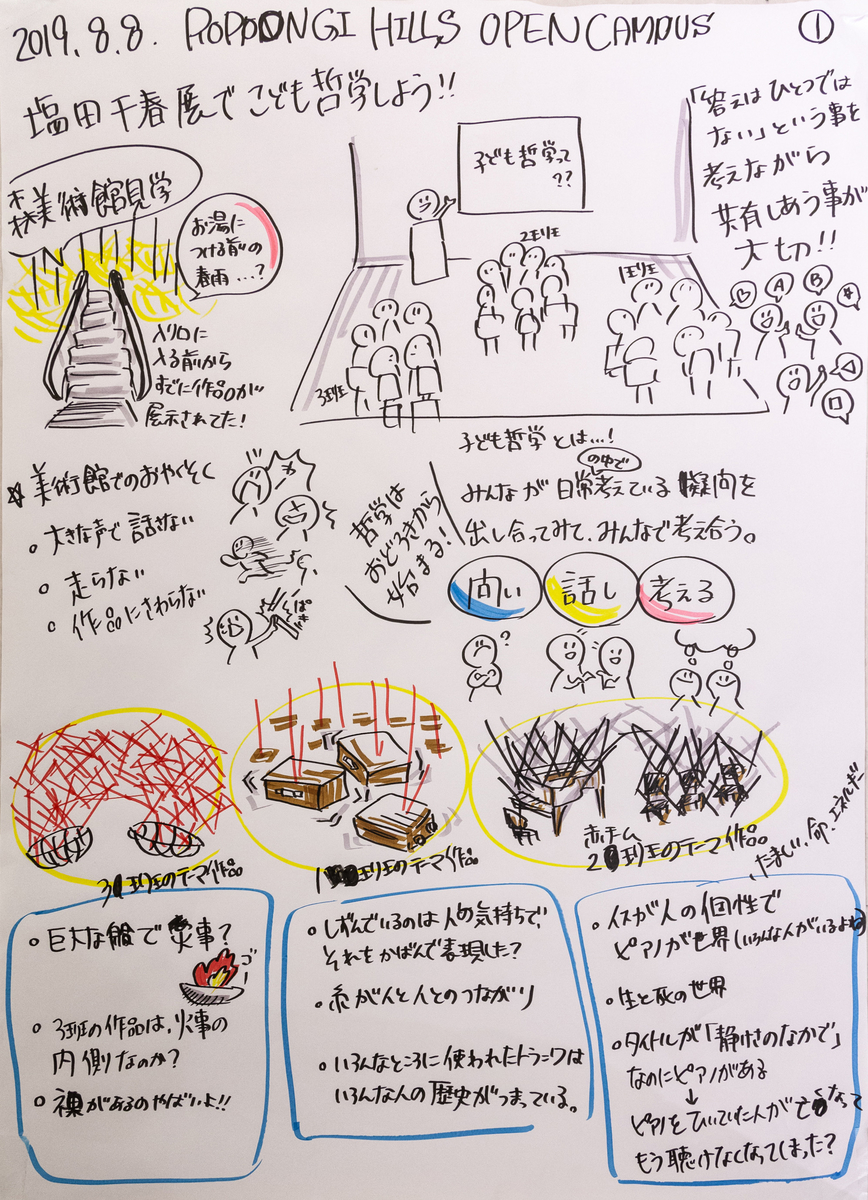 2019.8.8. ROPPONGI HILLS OPEN CAMPUS ①
塩田千春展でこども哲学しよう!!
森美術館見学
お湯に
つける前の
春雨…?
入り口に
入る前から
すでに作品が
展示されてた!
子ども哲学って
??
2班
1班
3班
「答えはひとつでは
ない」という事を
考えながら
共有しあう事が
大切!!
B A B
☆美術館でのおやくそく
・大きな声で話さない
・走らない
・作品にさわらない
ぱき
哲学は
おどろきから
始まる!
子ども哲学とは…!
みんなが日常の中で考えている疑問を
出し合ってみて、みんなで考え合う。
問い 話し 考える
?
3班のテーマ作品
1班のテーマ作品
2班のテーマ作品
たましい、命、エネルギー
・巨大な船で火事?
ゴー
・3班の作品は、火事の
内側なのか?
・裸があるのやばいよ!!
・しずんでいるのは人の気持ちで、
それをかばんで表現した?
・糸が人と人とのつながり
・いろんなところに使われたトランクは
いろんな人の歴史がつまっている。
・イスが人の個性で
ピアノが世界(いろんな人がいるよね)
・生と死の世界
・タイトルが「静けさのなかで」
なのにピアノがある
↓
ピアノをひいていた人が亡くなって
もう聴けなくなってしまった?